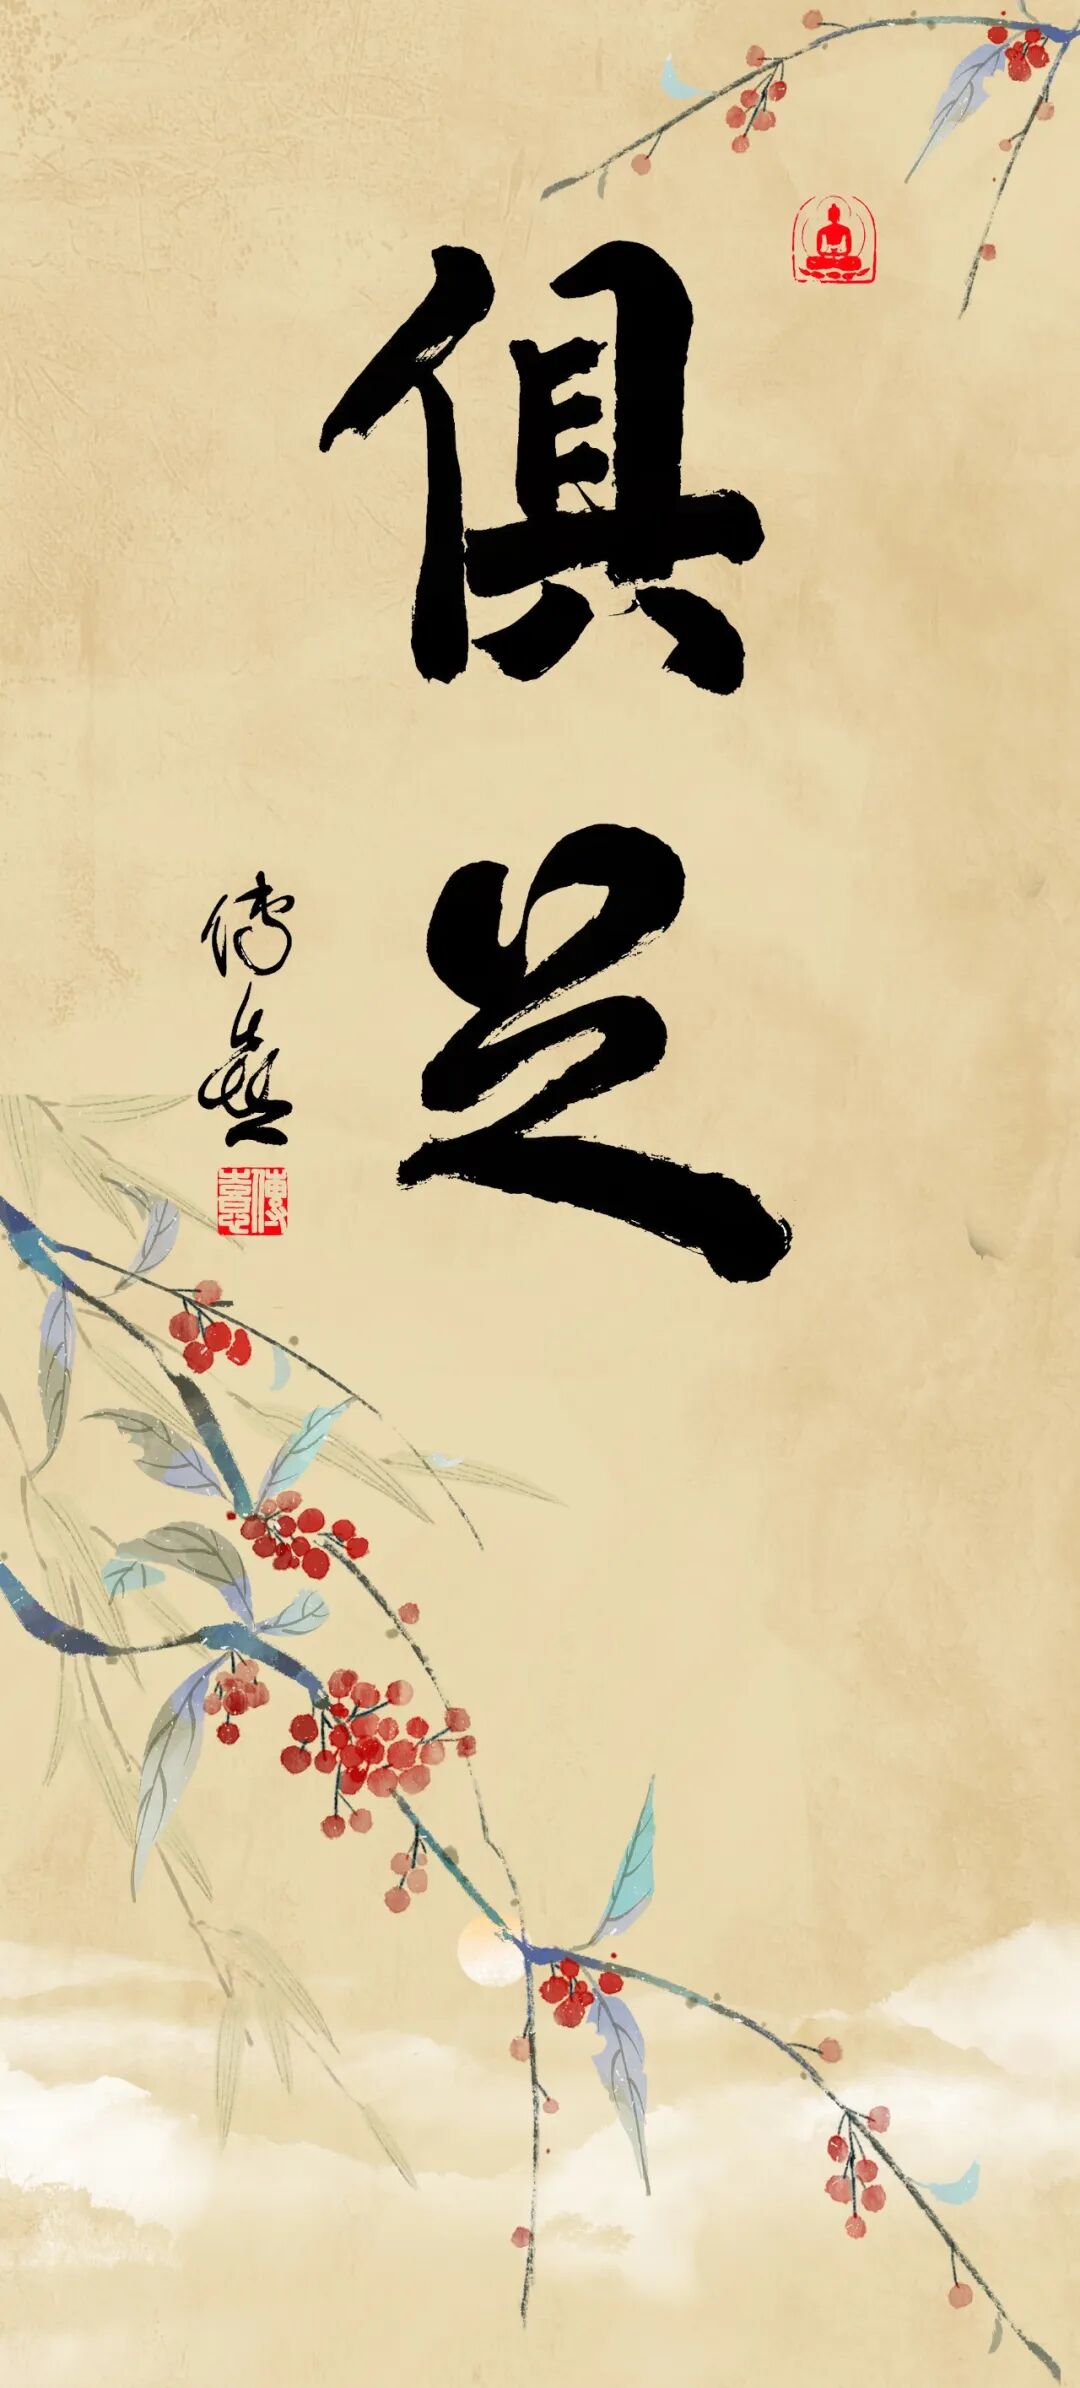 俱足
傳喜
傳喜